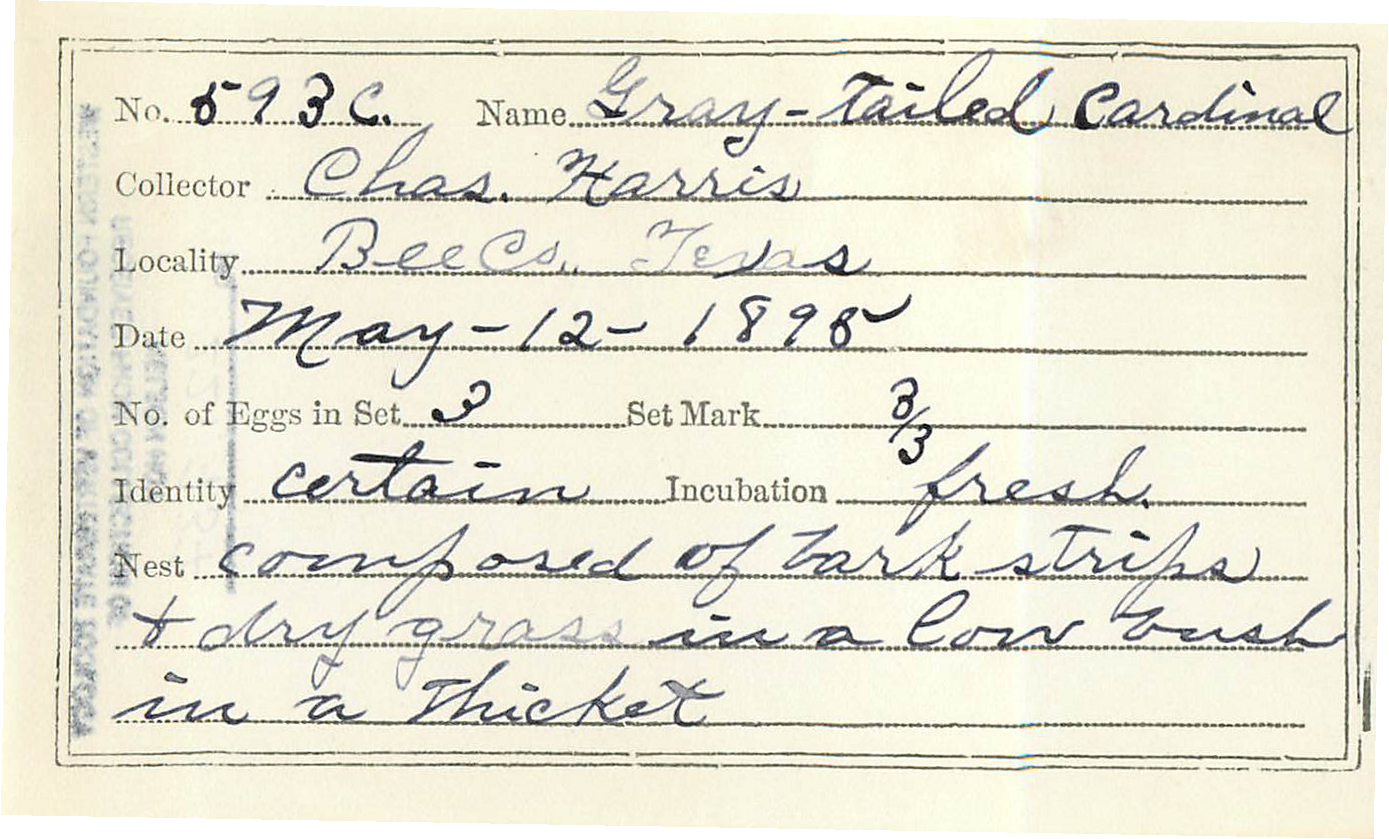 No. 593 C. Name Gray-tailed Cardinal
Collector Chas. Harris
Locality Bee Co., Texas
Date May-12-1895
No. of Eggs in Set 3 Set Mark 3/3
Identity certain Incubation fresh.
Nest composed of bark strips
& dry grass in a low bush
in a Thicket